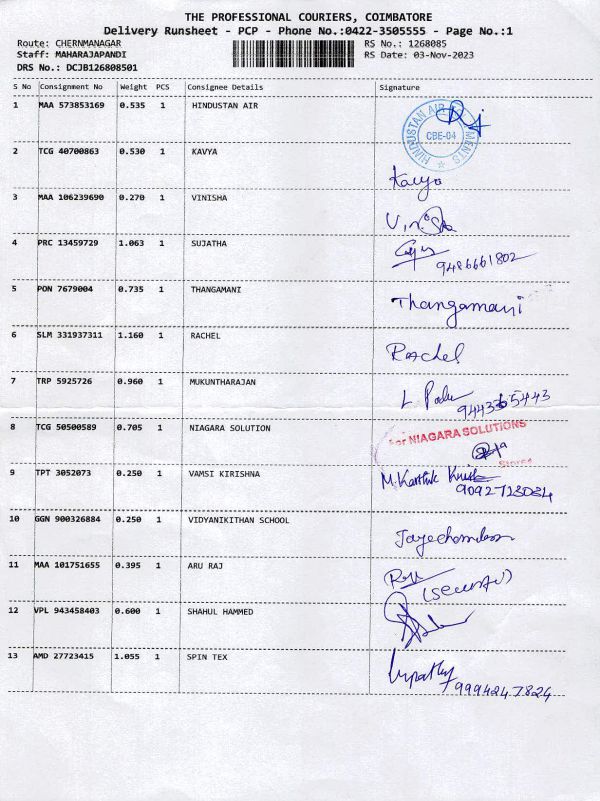 THE PROFESSIONAL COURIERS, COIMBATORE
Delivery Runsheet - PCP - Phone No.:0422-3505555 - Page No.:1
Route: CHERNMANAGAR RS No.: 1268085
Staff: MAHARAJAPANDI RS Date: 03-Nov-2023
DRS No.: DCJB126808501
S No Consignment No Weight PCS Consignee Details Signature
1 MAA 573853169 0.535 1 HINDUSTAN AIR
HINDUSTAN AIR
CBE-04
2 TCG 40700863 0.530 1 KAVYA
Kavya
3 MAA 106239690 0.270 1 VINISHA
4 PRC 13459729 1.063 1 SUJATHA
9486661802
5 PON 7679004 0.735 1 THANGAMANI
Thangamani
6 SLM 331937311 1.160 1 RACHEL
Rachel
7 TRP 5925726 0.960 1 MUKUNTHARAJAN
8 TCG 50500589 0.705 1 NIAGARA SOLUTION
For NIAGARA SOLUTIONS
Stores
9 TPT 3052073 0.250 1 VAMSI KIRISHNA
M. Karthik
10 GGN 900326884 0.250 1 VIDYANIKITHAN SCHOOL
11 MAA 101751655 0.395 1 ARU RAJ
12 VPL 943458403 0.600 1 SHAHUL HAMMED
13 AMD 27723415 1.055 1 SPIN TEX
9994247824